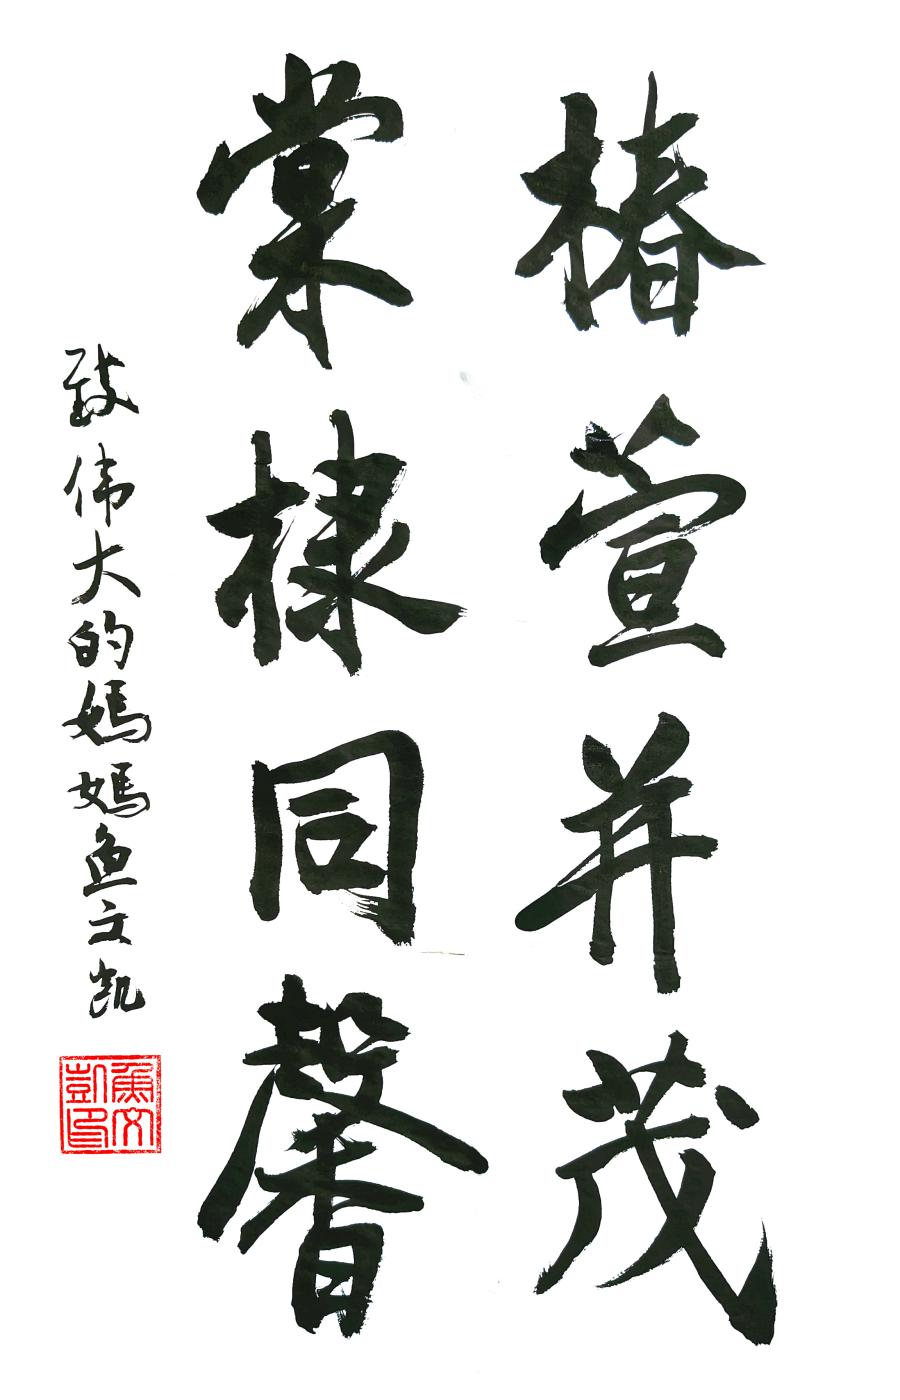 椿萱并茂
棠棣同馨
致伟大的媽媽鱼文凯
魚文
凱印